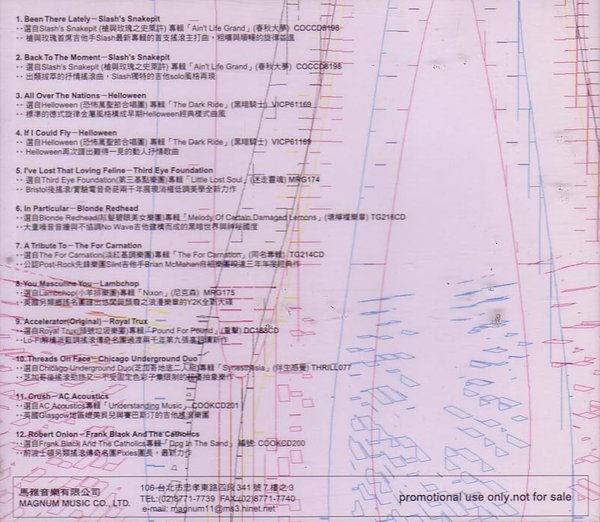 1. Been There Lately－Slash's Snakepit
‥選自Slash's Snakepit (槍與玫瑰之史萊許) 專輯「Ain't Life Grand」(春秋大夢) COCCD8198
‥槍與玫瑰首席吉他手Slash最新專輯的首支搖滾主打曲，粗曠與順暢的旋律並進
2. Back To The Moment－Slash's Snakepit
‥選自Slash's Snakepit (槍與玫瑰之史萊許) 專輯「Ain't Life Grand」(春秋大夢) COCCD8198
‥出類拔萃的抒情搖滾曲，Slash獨特的吉他solo風格再現
3. All Over The Nations－Helloween
‥選自Helloween (恐怖萬聖節合唱團) 專輯「The Dark Ride」(黑暗騎士) VICP61169
‥標準的德式旋律金屬風格構成早期Helloween經典樣式曲風
4. If I Could Fly－Helloween
‥選自Helloween (恐怖萬聖節合唱團) 專輯「The Dark Ride」(黑暗騎士) VICP61169
‥Helloween再次譜出難得一見的動人抒情歌曲
5. I've Lost That Loving Feline－Third Eye Foundation
‥選自Third Eye Foundation(第三基點樂團)專輯「Little Lost Soul」(迷走靈魂) MRG174
‥Bristol後搖滾/實驗電音奇葩兩千年展現消極低調美學全新力作
6. In Particular－Blonde Redhead
‥選自Blonde Redhead(紅髮碧眼美女樂團)專輯「Melody Of Certain Damaged Lemons」(壞檸檬樂章) TG216CD
‥大量噪音音牆與不協調No Wave吉他建構而成的黑暗世界與神秘國度
7. A Tribute To－The For Carnation
‥選自The For Carnation(淡紅基調樂團)專輯「The For Carnation」(同名專輯) TG214CD
‥公認Post-Rock先鋒樂團Slint吉他手Brian McMahan自組樂團睽違三年年度經典作
8. You Masculine You－Lambchop
‥選自Lambchop(小羊排樂團)專輯「Nixon」(尼克森) MRG175
9. Accelerator(Original)－Royal Trux
‥選自Royal Trux(頭號垃圾樂團)專輯「Pound For Pound」(重擊) DC188CD
10. Threads On Face－Chicago Underground Duo
‥選自Chicago Underground Duo(芝加哥地底二人組)專輯「Synesthesia」(伴生感覺) THRILL077
11. Crush－AC Acoustics
‥選自AC Acoustics專輯「Understanding Music」 COOKCD201
‥英國Glasgow地區媲美貝兒與賽巴斯汀的吉他搖滾樂團
12. Robert Onion－Frank Black And The Catholics
‥選自Frank Black And The Catholics專輯「Dog In The Sand」 編號: COOKCD200
‥前波士頓另類搖滾傳奇名團Pixies團長，最新力作
馬雅音樂有限公司
MAGNUM MUSIC CO., LTD.
106 台北市忠孝東路四段341號7樓之3
TEL:(02)8771-7739 FAX:(02)8771-7740
e-mail: magnum11@ms3.hinet.net
promotional use only.not for sale